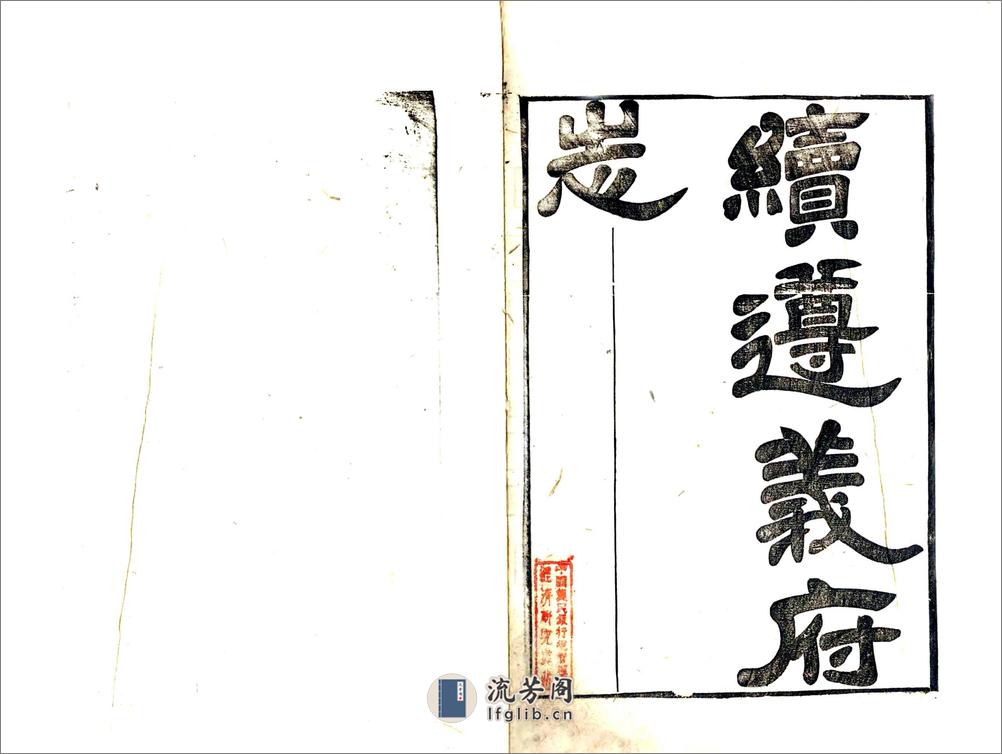 續遵義府
志
中國農民銀行總管理處
經濟研究
流芳阁
lfglib.cn